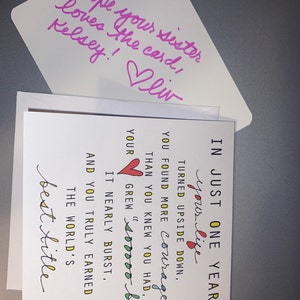 pe your sister
loves the card,
Kelsey!
♡ liv
IN JUST ONE YEAR
your life
TURNED UPSIDE DOWN.
YOU FOUND MORE courage
THAN YOU KNEW YOU HAD.
YOUR ♥ GREW "sooooo b
IT NEARLY BURST,
AND YOU TRULY EARNED
THE WORLD'S
best title